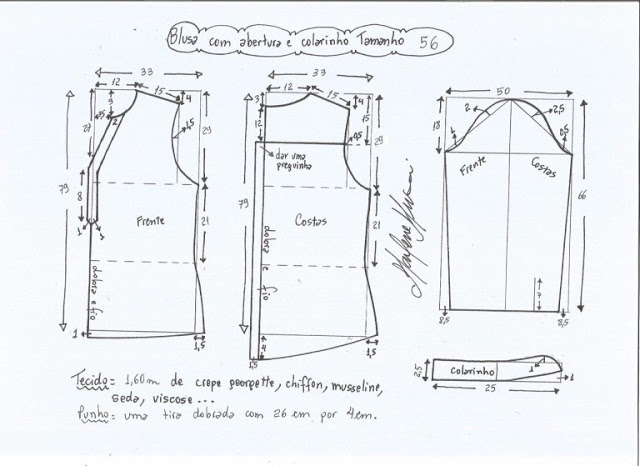 Blusa com abertura e colarinho Tamanho 56
33
12
15
4
3
3,5
2
27
1,5
29
79
8
21
Frente
1
1
dobra e fio
1
1,5
33
12
15
4
3
12
15
0,5
dar uma preguinha
29
79
21
Costas
dobra e fio
4
1,5
1,5
50
2
2,5
18
1
0,5
Frente
Costas
66
7
8,5
8,5
2,5
colarinho
1
1
1
25
Tecido = 1,60m de crepe georgette, chiffon, musseline,
seda, viscose...
Punho = uma tira dobrada com 26 cm por 4 cm.